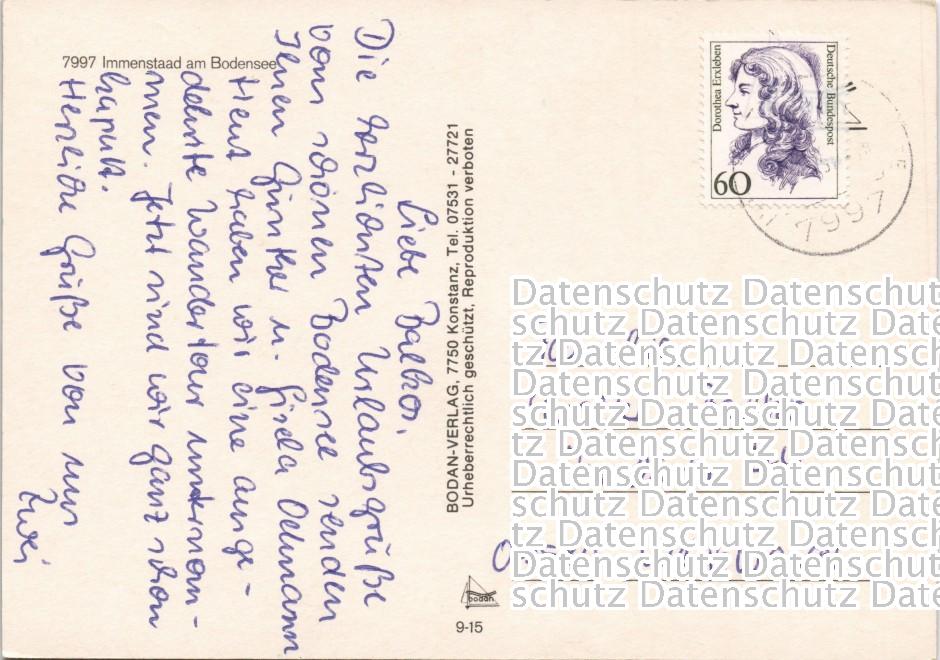 7997 Immenstaad am Bodensee
Liebe
Die herzlichsten Urlaubsgrüße
vom schönen Bodensee senden
Ihnen Günther u. Gisela
Heut haben wir eine ausge-
dehnte Wandertour unternom-
men. Jetzt sind wir ganz schön
kaputt.
Herzliche Grüße von uns
Zwei
BODAN-VERLAG, 7750 Konstanz, Tel. 07531 - 27721
Urheberrechtlich geschützt, Reproduktion verboten
bodan
9-15
Dorothea Erxleben
Deutsche Bundespost
60
7997
Datenschutz Datenschut
schutz Datenschutz Date
tz Datenschutz Datensch
Datenschutz Datenschut
schutz Datenschutz Date
tz Datenschutz Datensch
Datenschutz Datenschut
schutz Datenschutz Date
tz Datenschutz Datensch
Datenschutz Datenschut
schutz Datenschutz Date